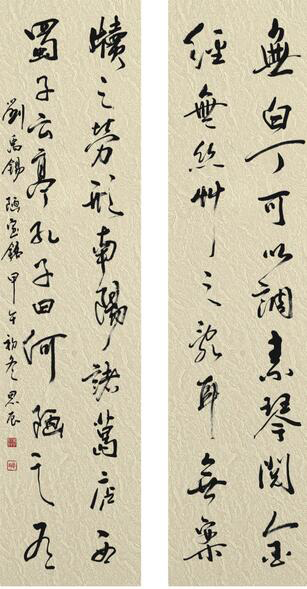 無白丁可以調素琴閱金
經無絲竹之亂耳無案
牘之勞形南陽諸葛廬西
蜀子云亭孔子曰何陋之有
劉禹錫陋室銘甲午初冬思辰